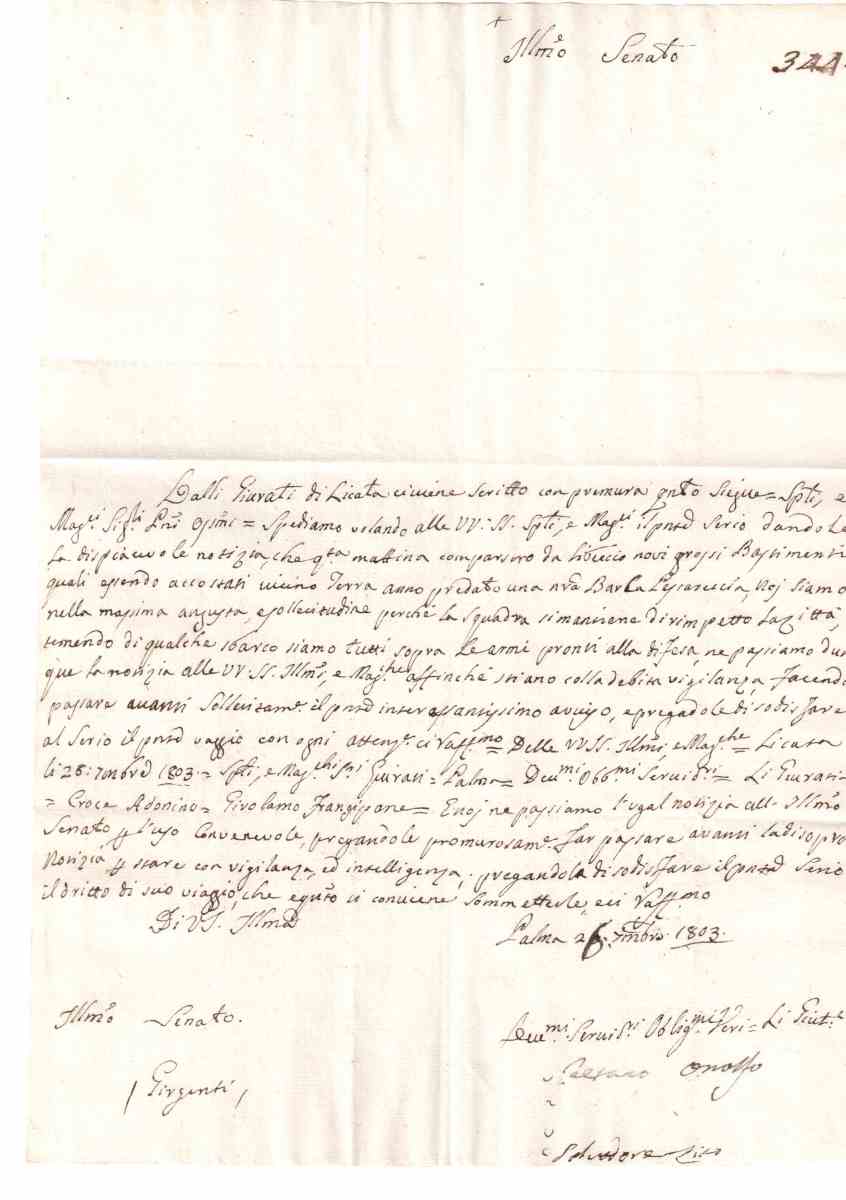 Illmo Senato
344
Dalli Giurati di Licata ci viene scritto con premura qnto siegue = Spli, e
Magci Sigri Pni Ossmi = Spediamo volando alle VV. SS. Spli, e Magci il pnte Serio dandole
la dispiacevole notizia, che qta mattina comparsero da novi grossi Bastimenti
quali essendo accostati vicino Terra anno predato una nra Barca Pescareccia, Noj siamo
nella massima angusta, e sollecitudine perchè la squadra si mantiene dirimpetto la Città,
temendo di qualche sbarco siamo tutti sopra le armi pronti alla difesa, ne passiamo dun
que la notizia alle VV. SS. Illme, e Magche affinchè stiano colla debita vigilanza, facendo
passare avanti sollecitamte il pnte interessantissimo avviso, e pregandole di sodisfare
al Serio il pnte viaggio con ogni attenz. ci raffmo = Delle VV. SS. Illme, e Magche = Licata
li 7mbre 1803 = Spli, e Magchi Sri Giurati = Palma = Devmi Obbmi Servidri = Li Giurati
= Croce Adonino = Girolamo Frangipane = E noj ne passiamo l'ugal notizia all' Illmo
Senato p l'uso convenevole, pregandole premurosamte far passare avanti la disopra
Notizia p stare con vigilanza, ed intelligenza, pregandola di sodisfare il pnte Serio
il dritto di suo viaggio, che è qnto ci conviene sommetterle e ci raffmo
Di VS. Illma
Palma 26 7mbre 1803.
Illmo Senato.
Devmi Servidri Obbligmi Veri = Li Giuti
Girgenti
Gaetano Onolfo
Salvadore